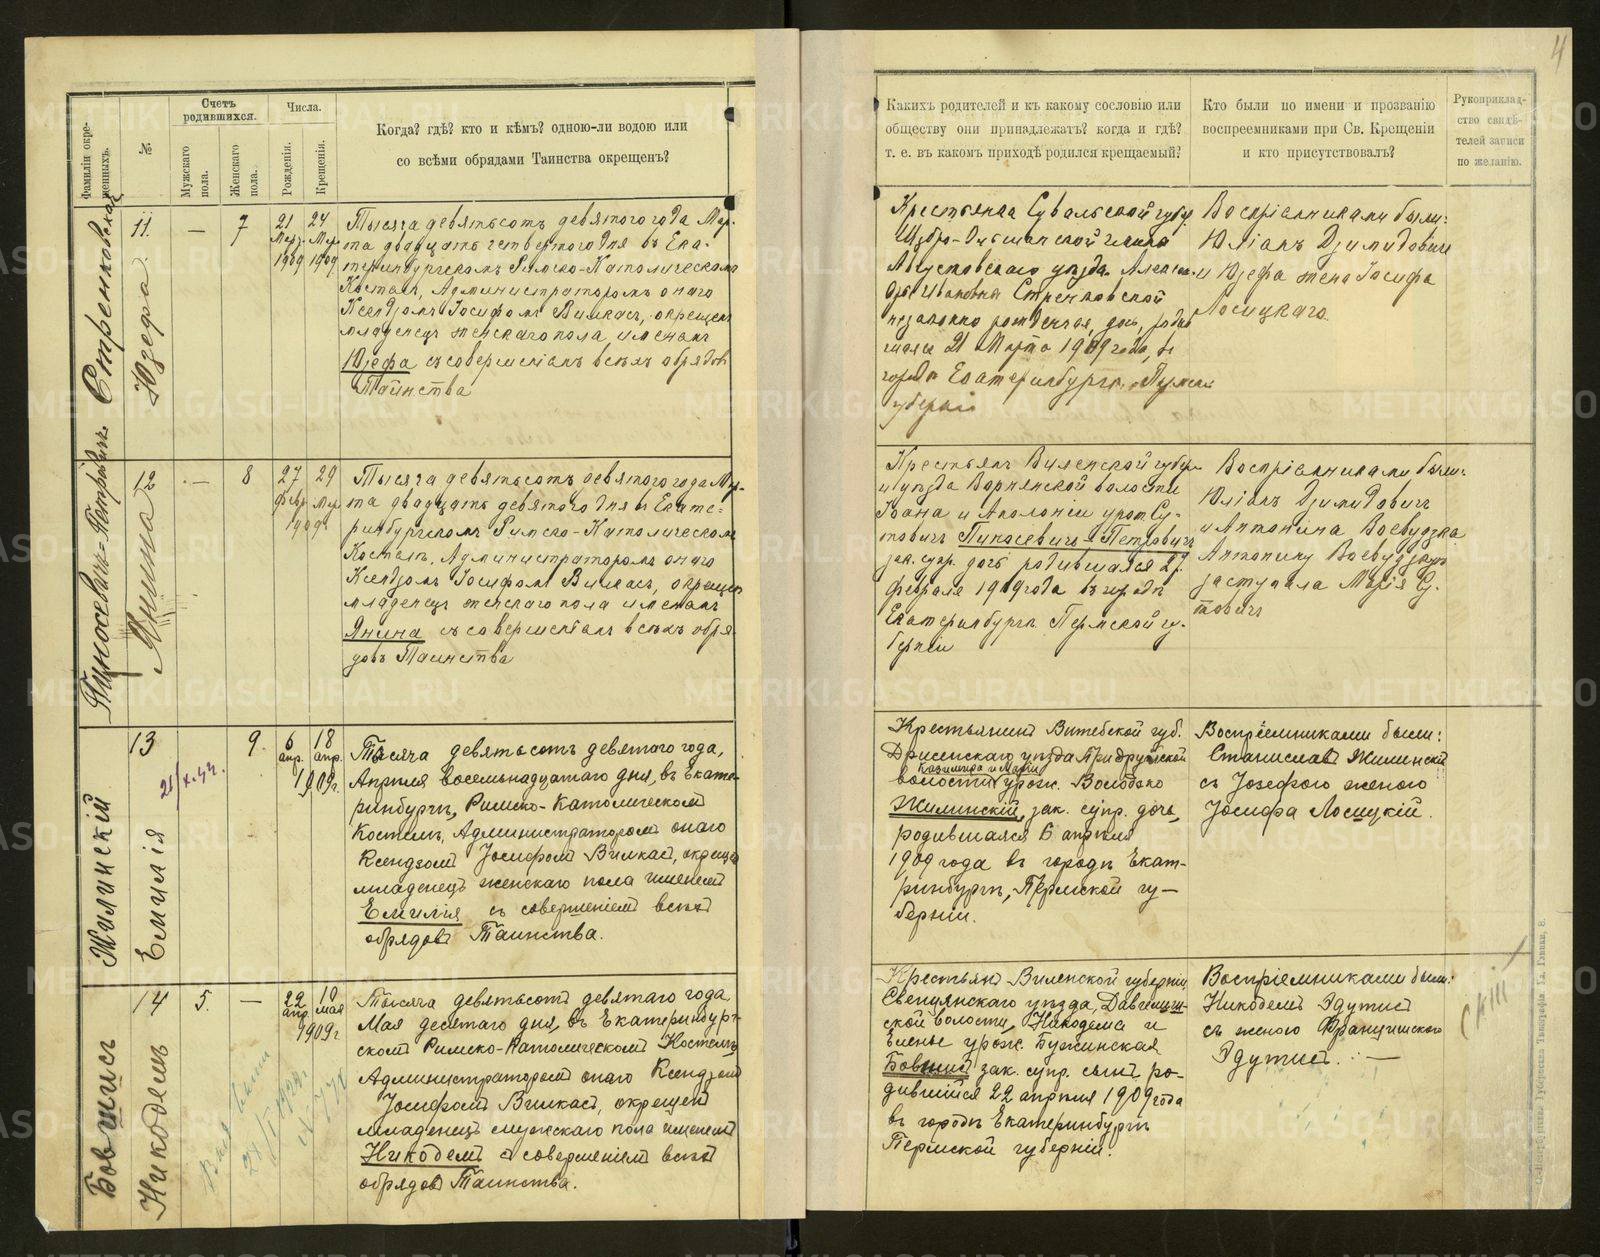 4
Фамиліи окре-
щенныхъ.
№
Счетъ
родившихся.
Мужскаго
пола.
Женскаго
пола.
Числа.
Рожденія.
Крещенія.
Когда? гдѣ? кто и кѣмъ? одною-ли водою или
со всѣми обрядами Таинства окрещенъ?
Какихъ родителей и къ какому сословію или
обществу они принадлежатъ? когда и гдѣ?
т. е. въ какомъ приходѣ родился крещаемый?
Кто были по имени и прозванію
воспреемниками при Св. Крещеніи
и кто присутствовалъ?
Рукоприклад-
ство свидѣ-
телей записи
по желанію.
Стренковская
Юзефа
11.
—
7
21
24
1909
1909
Тысяча девятьсотъ девятого года Мар-
та двадцать четвертого дня въ Ека-
теринбургскомъ Римско-Католическомъ
Костелѣ, Администраторомъ онаго
Ксендзомъ Іосифомъ Вилкасъ, окрещенъ
младенецъ женскаго пола, именемъ
Юзефа съ совершеніемъ всѣхъ обрядовъ
Таинства
Крестьянка Сувалкской губ.
Августовскаго уѣзда
Стренковской
незаконно рожденная дочь, родив
шаяся 21 Марта 1909 года, въ
городѣ Екатеринбургѣ, Пермской
губерніи
Воспріемниками были:
Юліанъ Дзимидовичъ
и Юзефа жена Іосифа
Лосицкаго
Пиносевичъ-Петровичъ
Янина
12
—
8
27
29
февр.
Мар
1909г.
Тысяча девятьсотъ девятого года Мар-
та двадцать девятого дня въ Екате-
ринбургскомъ Римско-Католическомъ
Костелѣ, Администраторомъ онаго
Ксендзомъ Іосифомъ Вилкасъ, окрещенъ
младенецъ женскаго пола именемъ
Янина съ совершеніемъ всѣхъ обря-
довъ Таинства
Крестьянъ Виленской губерн.
и уѣзда Ворнянской волости
Іоана и Аполоніи урож. Су-
товичъ Пиносевичъ-Петровичъ
зак. супр. дочь родившаяся 27
февраля 1909 года въ городѣ
Екатеринбургѣ Пермской гу-
берніи
Воспріемниками были:
Юліанъ Дзимидовичъ
и Антонина Воевудзка
Антонину Воевудзкую
заступала Марія Су-
товичъ
Жилинскій
Емилія
13
21/X.44.
9.
6
18
апр.
апр.
1909г.
Тысяча девятьсотъ девятаго года,
Апрѣля восемьнадцатаго дня, въ Екате-
ринбургѣ, Римско-Католическомъ
Костелѣ, Администраторомъ онаго
Ксендзомъ Іосифомъ Вилкасъ, окрещенъ
младенецъ женскаго пола именемъ
Емилія съ совершеніемъ всѣхъ
обрядовъ Таинства.
Крестьянинъ Витебской губ.
Дрисенскаго уѣзда Придруйской
Казимира и Маріи
волости урож. Володзко
Жилинскій, зак. супр. дочь,
родившаяся 6 апрѣля
1909 года въ городѣ Екат-
ринбургѣ, Пермской гу-
берніи.
Воспріемниками были:
Станиславъ Жилинскій
съ Іозефою женою
Іосифа Лосицкій.
Бовшисъ
Никодемъ
14
5.
—
22
10
апр.
мая
1909г
Тысяча девятьсотъ девятаго года
Мая десятаго дня, въ Екатеринбург-
скомъ Римско-Католическомъ Костелѣ,
Администраторомъ онаго Ксендзомъ
Іосифомъ Вилкасъ, окрещенъ
младенецъ мужскаго пола именемъ
Никодемъ съ совершеніемъ всѣхъ
обрядовъ Таинства.
Крестьянъ Виленской губерніи,
Свенцянскаго уѣзда, Давгелиш-
ской волости, Никодема и
Елены урож. Бужинская
Бовшисъ зак. супр. сынъ ро-
дившійся 22 апрѣля 1909 года
въ городѣ Екатеринбургѣ
Пермской губерніи.
Воспріемниками были:
Никодемъ Эдутисъ
съ женою Францишкою
Эдутисъ. —
METRIKI.GASO-URAL.RU